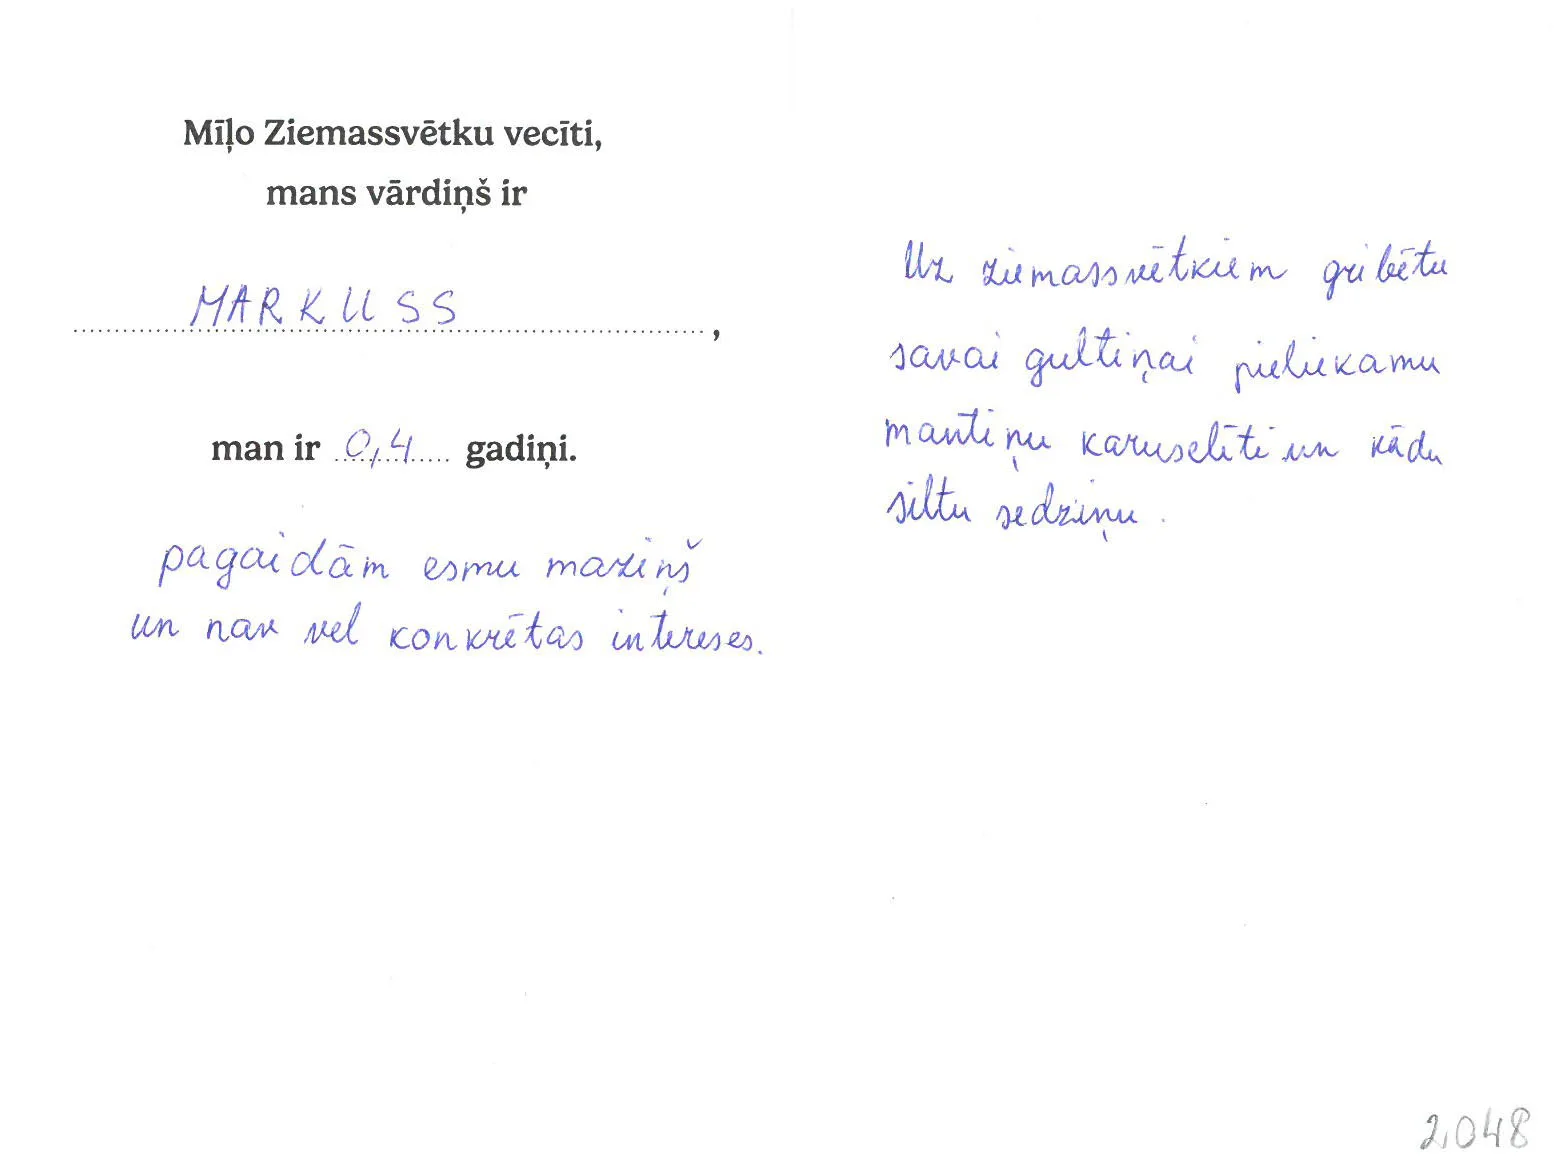 Mīļo Ziemassvētku vecīti,
mans vārdiņš ir
MARKUSS,
man ir 0,4 gadiņi.
pagaidām esmu maziņš
un nav vel konkrētas intereses.
Uz ziemassvētkiem gribētu
savai gultiņai pieliekamu
mantiņu karuselīti un kādu
siltu sedziņu.
2048